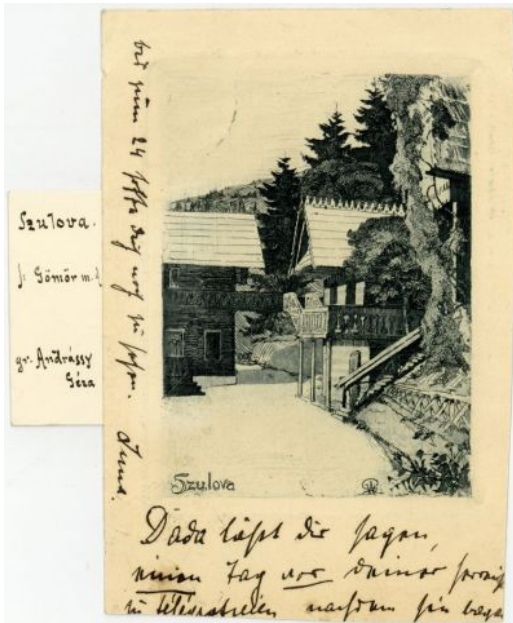 Szulova.
Gömör m.
gr. Andrássy
Géza
bis zum 24 hoffe dich noch zu sehen.
Szulova
Dada läßt dir sagen,
einen Tag vor deiner
zu telegrafieren nachdem sie